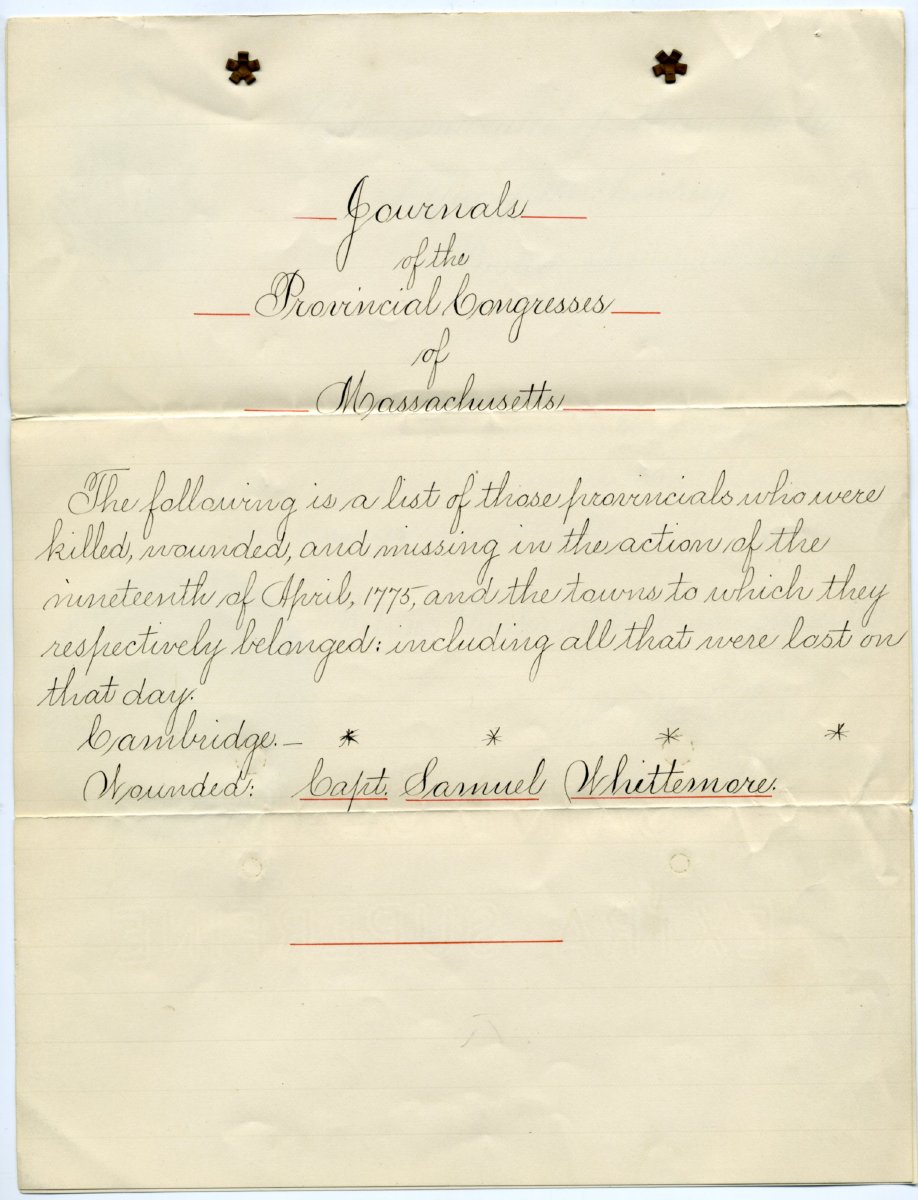 Journals
of the
Provincial Congresses
of
Massachusetts
The following is a list of those provincials who were
killed, wounded, and missing in the action of the
nineteenth of April, 1775, and the towns to which they
respectively belonged: including all that were lost on
that day.
Cambridge. — * * * *
Wounded: Capt. Samuel Whittemore.